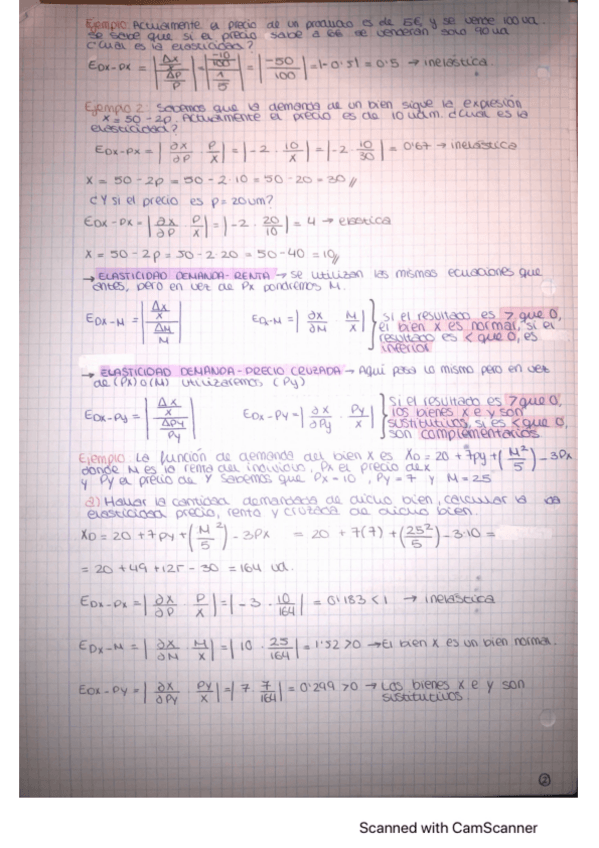 Ejemplo. Actualmente el precio de un producto es de 5€, y se vende 100 ud.
Se sabe que si el precio sube a 6€ se venderán solo 90 ud
¿Cuál es la elasticidad?
EDX-PX = |Δx/x / ΔP/P| = |-10/100 / 1/5| = |-50/100| = |-0'5| = 0'5 → inelástica.
Ejemplo 2. Sabemos que la demanda de un bien sigue la expresión
x = 50 - 2p. Actualmente el precio es de 10 u.d.m. ¿Cuál es la
elasticidad?
EDX-PX = |∂x/∂p · P/x| = |-2 · 10/x| = |-2 · 10/30| = 0'67 → inelástica
x = 50 - 2p = 50 - 2·10 = 50 - 20 = 30 //
¿Y si el precio es p = 20 um?
EDX-PX = |∂x/∂p · P/x| = |-2 · 20/10| = 4 → elástica
x = 50 - 2p = 50 - 2·20 = 50 - 40 = 10 //
→ ELASTICIDAD DEMANDA-RENTA → se utilizan las mismas ecuaciones que
antes, pero en vez de Px pondremos M.
EDX-M = |Δx/x / ΔM/M| EDX-M = |∂x/∂M · M/x| } Si el resultado es > que 0,
el bien x es normal, si el
resultado es < que 0, es
inferior
→ ELASTICIDAD DEMANDA-PRECIO CRUZADA → Aquí pasa lo mismo pero en vez
de (Px) o (M) utilizaremos (Py)
EDX-Py = |Δx/x / ΔPy/Py| EDX-Py = |∂x/∂Py · Py/x| } Si el resultado es > que 0,
los bienes x e y son
sustitutivos, si es < que 0,
son complementarios
Ejemplo. La función de demanda del bien x es XD = 20 + 7py + (M²/5) - 3Px
donde M es la renta del individuo, Px el precio de x
y Py el precio de y Sabemos que Px = 10, Py = 7 y M = 25
a) Hallar la cantidad demandada de dicho bien, calcular la
elasticidad precio, renta y cruzada de dicho bien.
XD = 20 + 7py + (M/5)² - 3Px = 20 + 7(7) + (25²/5) - 3·10 =
= 20 + 49 + 125 - 30 = 164 ud.
EDX-PX = |∂x/∂p · P/x| = |-3 · 10/164| = 0'183 < 1 → inelástica
EDX-M = |∂x/∂M · M/x| = |10 · 25/164| = 1'52 > 0 → El bien x es un bien normal.
EDX-PY = |∂x/∂Py · Py/x| = |7 · 7/164| = 0'299 > 0 → Los bienes x e y son
sustitutivos.
2
Scanned with CamScanner